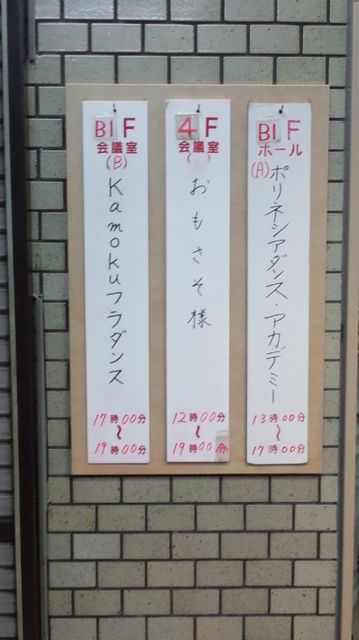 B1F
ホール
(A)ポリネシアダンス・アカデミー
13時00分
〜
17時00分
4F
会議室
おもさそ様
12時00分
〜
19時00分
B1F
会議室
(B)
Kamokuフラダンス
17時00分
〜
19時00分